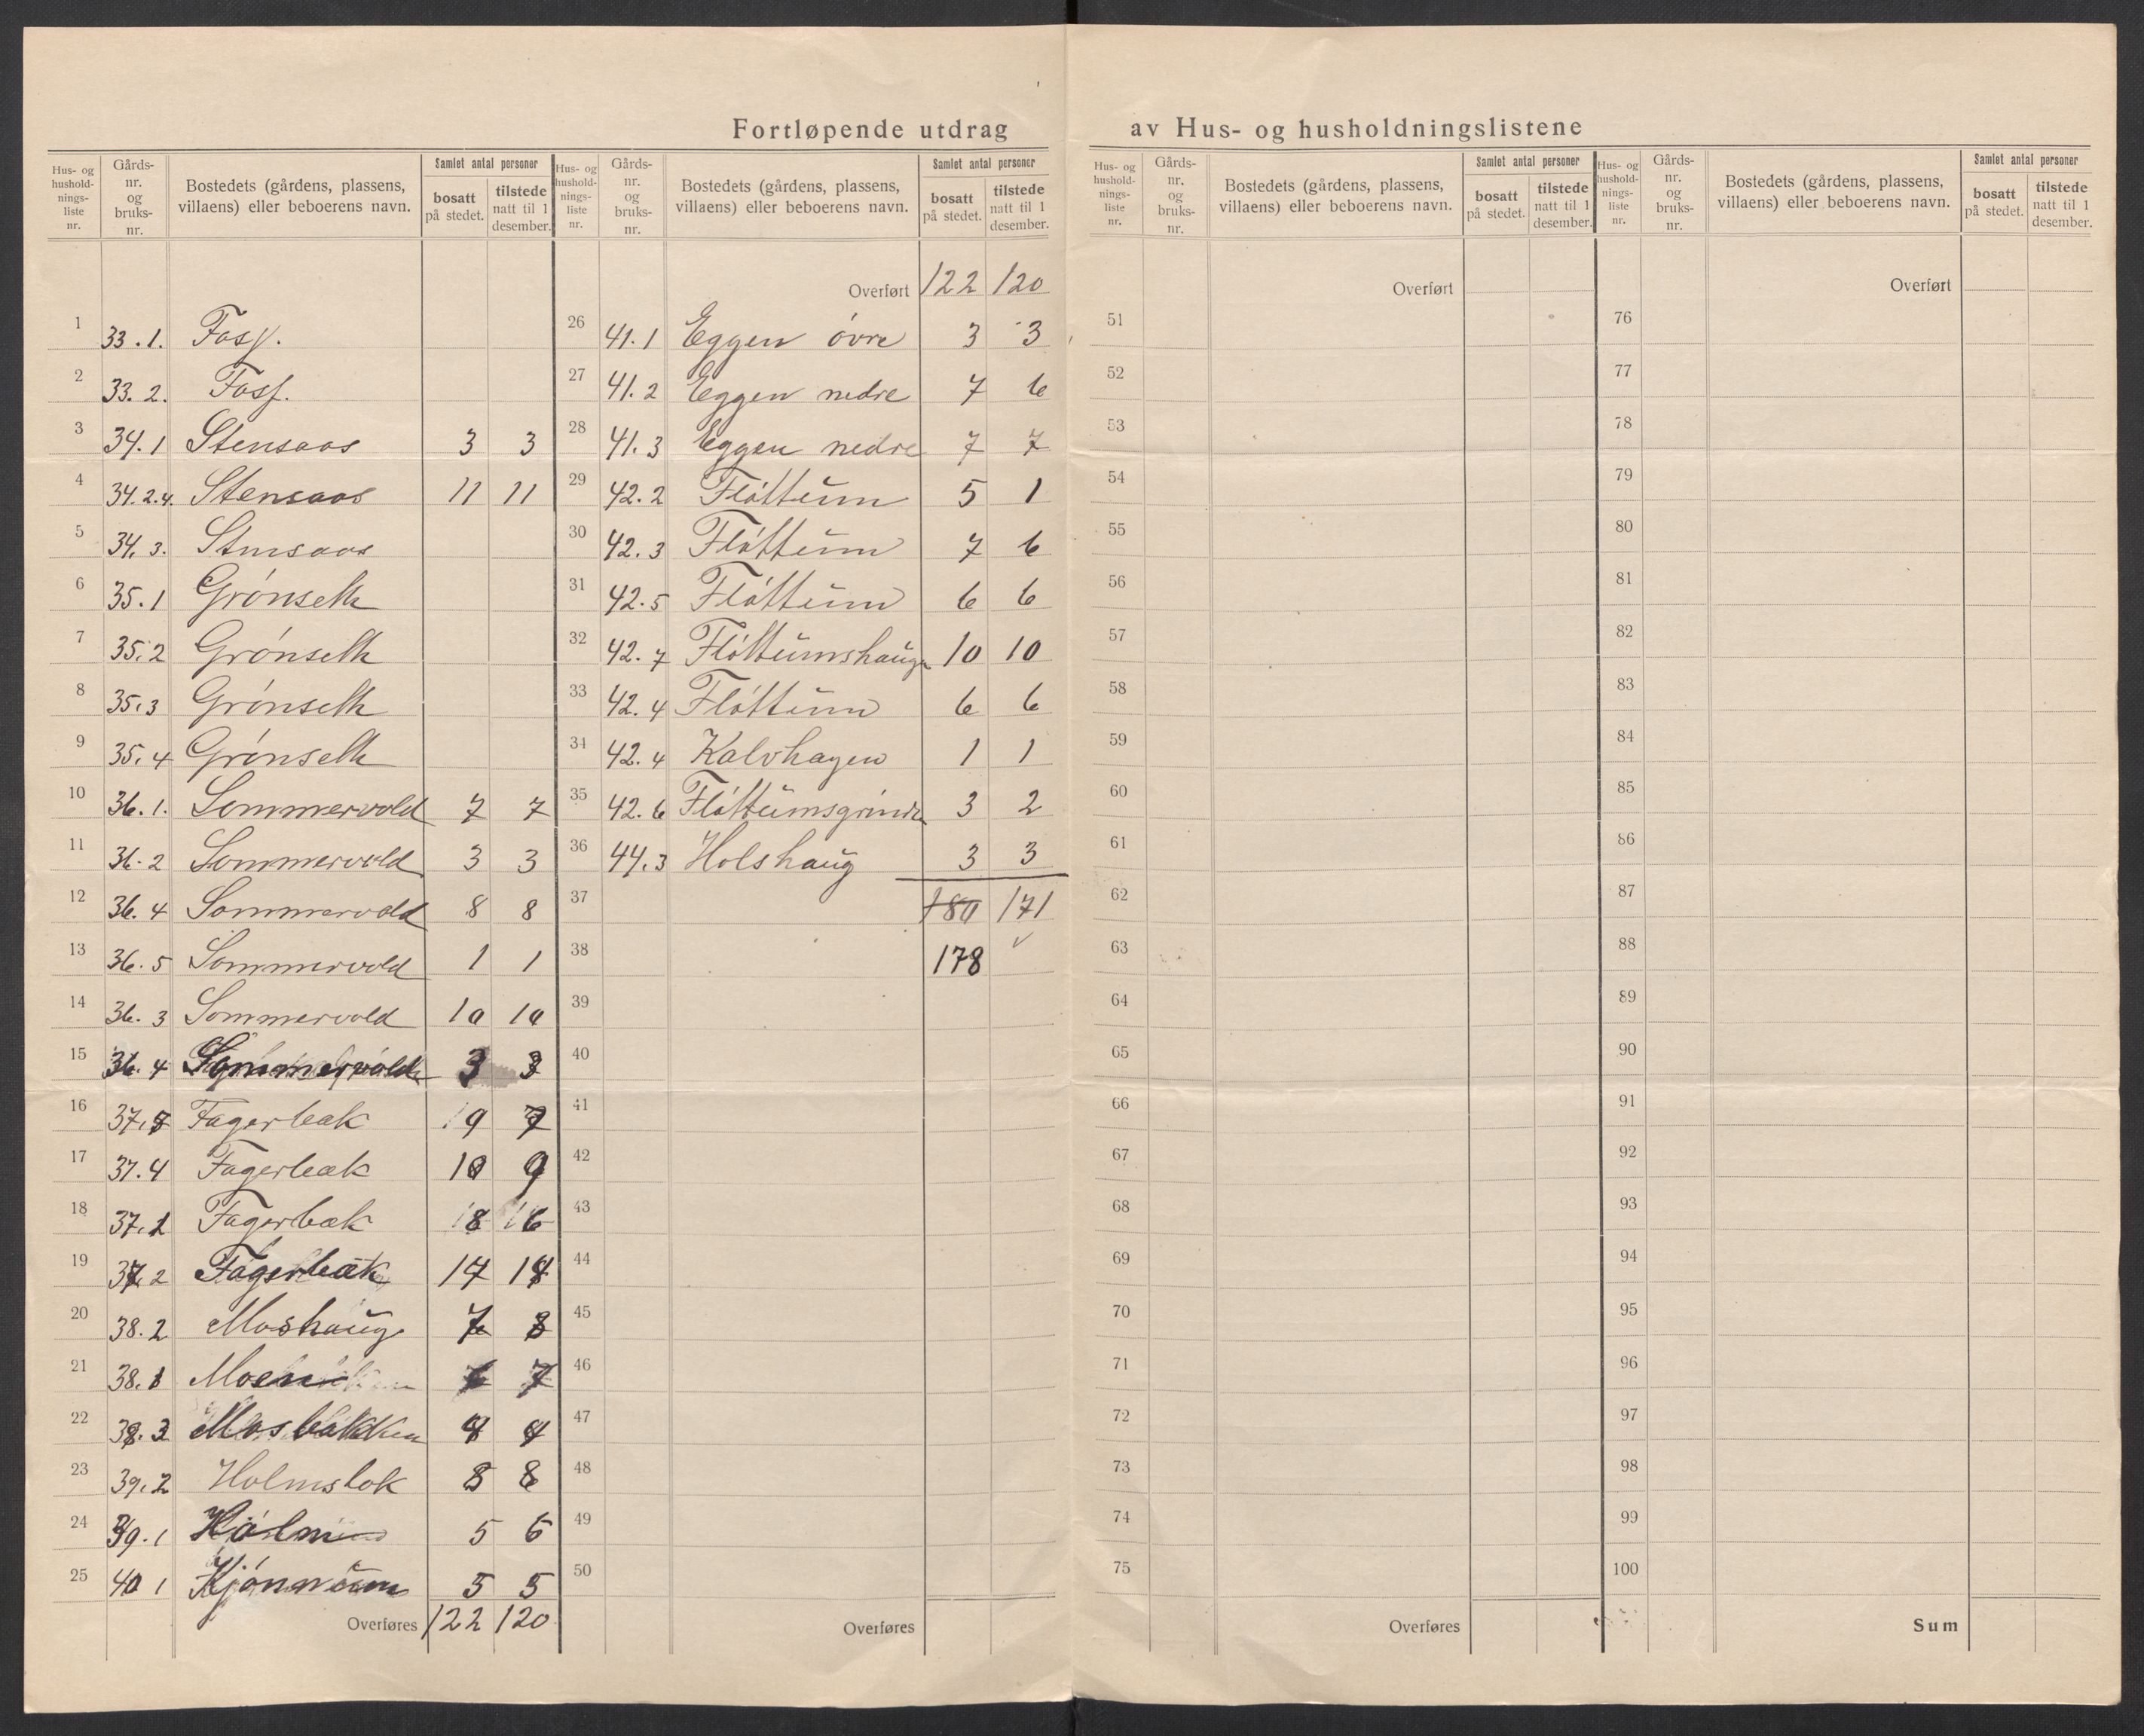 Fortløpende utdrag av Hus- og husholdningslistene
Hus- og hushold-nings-liste nr. Gårds-nr. og bruks-nr. Bostedets (gårdens, plassens, villaens) eller beboerens navn. Samlet antal personer bosatt på stedet. tilstede natt til 1 desember.
1 33.1. Foss.
2 33.2. Foss.
3 34.1 Stensaas 3 3
4 34.2.4. Stensaas 11 11
5 34.3. Stensaas
6 35.1 Grønseth
7 35.2 Grønseth
8 35.3 Grønseth
9 35.4 Grønseth
10 36.1. Sommervold 7 7
11 36.2 Sommervold 3 3
12 36.4 Sommervold 8 8
13 36.5 Sommervold 1 1
14 36.3 Sommervold 10 10
15 36.4 Sommervold 3 3
16 37. Fagerbæk 9 7
17 37.4 Fagerbæk 10 9
18 37.1 Fagerbæk 8 6
19 37.2 Fagerbæk 17 18
20 38.2 Moshaug 7 8
21 38.1 Moen 7
22 38.3 Mosbakken 4 4
23 39.2 Holmsbok 8 8
24 39.1 Holm 5 6
25 40 1 5 5
Overføres 122 120
Hus- og hushold-nings-liste nr. Gårds-nr. og bruks-nr. Bostedets (gårdens, plassens, villaens) eller beboerens navn. Samlet antal personer bosatt på stedet. tilstede natt til 1 desember.
Overført 122 120
26 41.1 Eggen øvre 3 3
27 41.2 Eggen nedre 7 6
28 41.3 Eggen nedre 7 7
29 42.2 Fløttum 5 1
30 42.3 Fløttum 7 6
31 42.5 Fløttum 6 6
32 42.7 Fløttumshaugen 10 10
33 42.4 Fløttum 6 6
34 42.4 Kalvhagen 1 1
35 42.6 Fløttumsgrinden 3 2
36 44.3 Holshaug 3 3
37 180 171
38 178
39
40
41
42
43
44
45
46
47
48
49
50
Overføres
Hus- og hushold-nings-liste nr. Gårds-nr. og bruks-nr. Bostedets (gårdens, plassens, villaens) eller beboerens navn. Samlet antal personer bosatt på stedet. tilstede natt til 1 desember.
Overført
51
52
53
54
55
56
57
58
59
60
61
62
63
64
65
66
67
68
69
70
71
72
73
74
75
Overføres
Hus- og hushold-nings-liste nr. Gårds-nr. og bruks-nr. Bostedets (gårdens, plassens, villaens) eller beboerens navn. Samlet antal personer bosatt på stedet. tilstede natt til 1 desember.
Overført
76
77
78
79
80
81
82
83
84
85
86
87
88
89
90
91
92
93
94
95
96
97
98
99
100
Sum